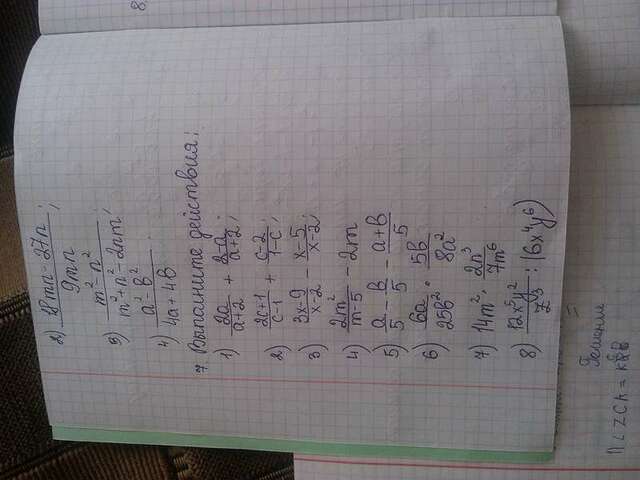 2) (18mn - 27n)/(9mn);
3) (m² - n²)/(m² + n² - 2nm);
4) (a² - b²)/(4a + 4b)
7 Выполните действия:
1) 2a/(a+2) + (2-a)/(a+2);
2) (2c-1)/(c-1) + (c-2)/(1-c);
3) (3x-9)/(x-2) - (x-5)/(x-2);
4) 2m²/(m-5) - 2m
5) a/5 - b/5 - (a+b)/5
6) 6a/25b² · 5b/8a²
7) 14m² · 2n³/7m⁶
8) 12x⁵y²/z³ : (6x⁴y⁶)
Решение